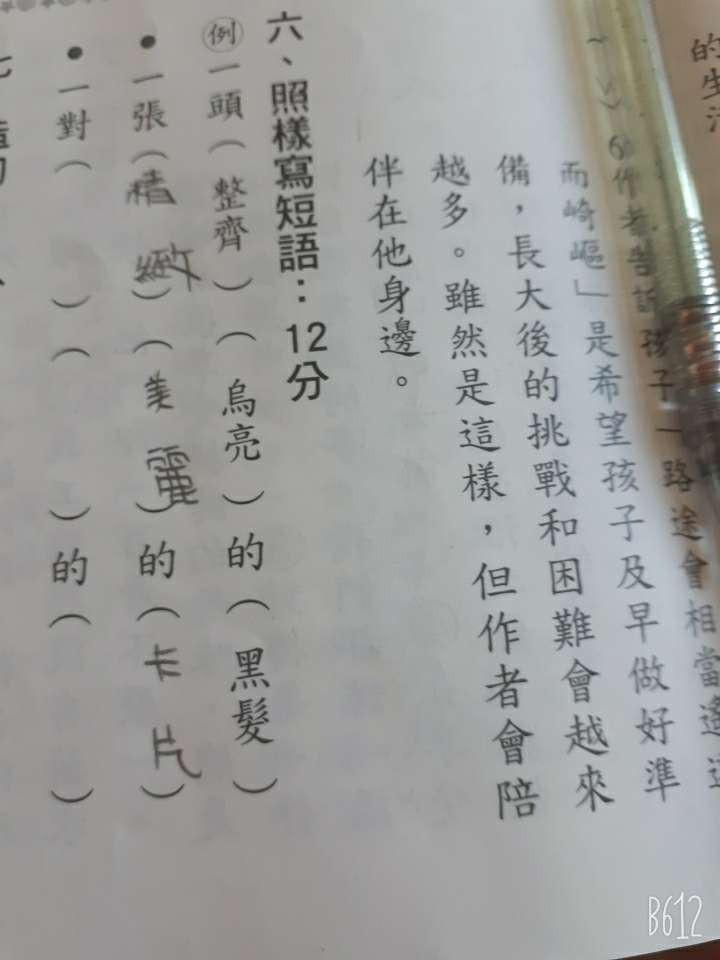 的生活
～ＶＶ作者告訴孩子「路途會相當遙遠
而崎嶇」是希望孩子及早做好準
備，長大後的挑戰和困難會越來
越多。雖然是這樣，但作者會陪
伴在他身邊。
六、照樣寫短語：12分
例一頭（整齊）（烏亮）的（黑髮）
●一張（精緻）（美麗）的（卡片）
●一對（　　）（　　）的（　　）
B612